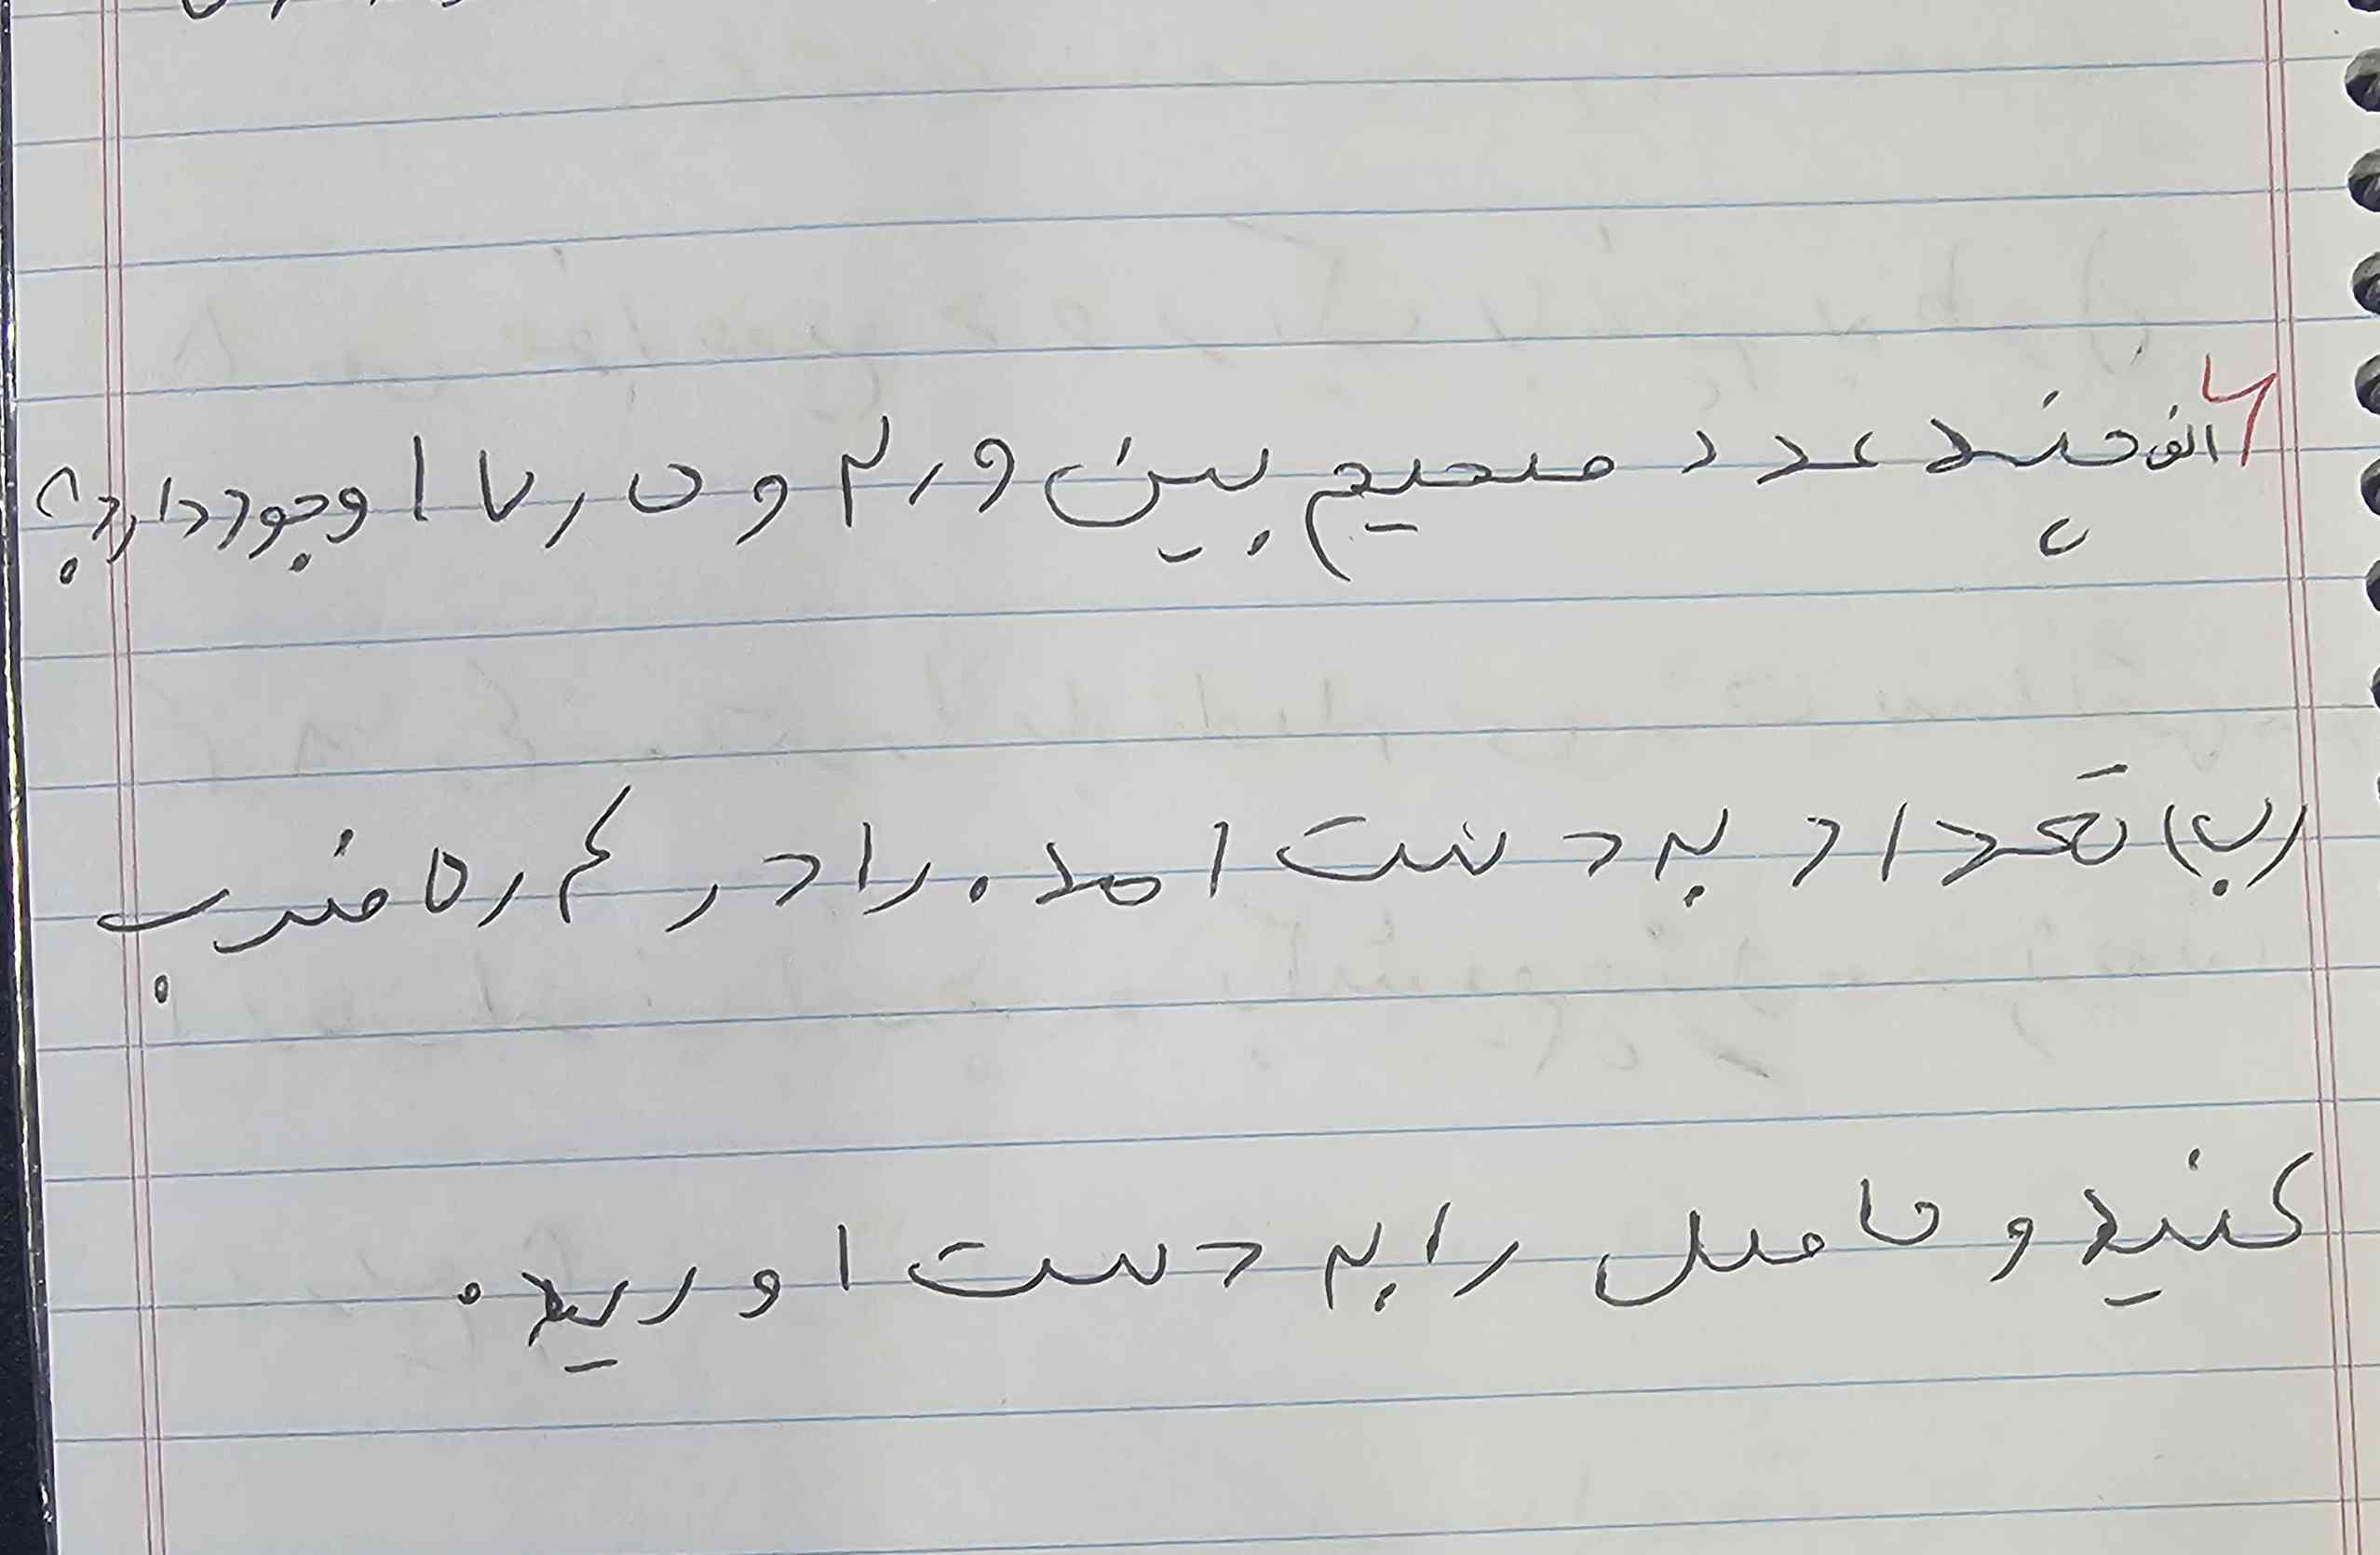 ۶ الف چند عدد صحیح بین ۲٫۹ و ۱۷٫۵ وجود دارد؟
(ب) تعداد به دست امده را در ۵٫۴ ضرب
کنید و حاصل را به دست اورید.